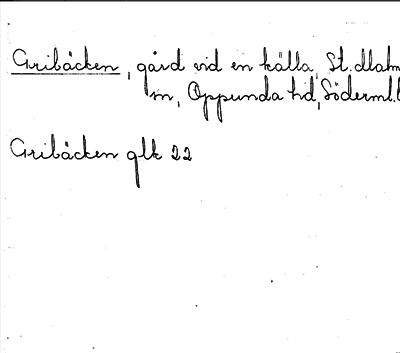 Gribäcken, gård vid en källa, St. Malm
sn, Oppunda hd, Söderml.
Gribäcken glk 22